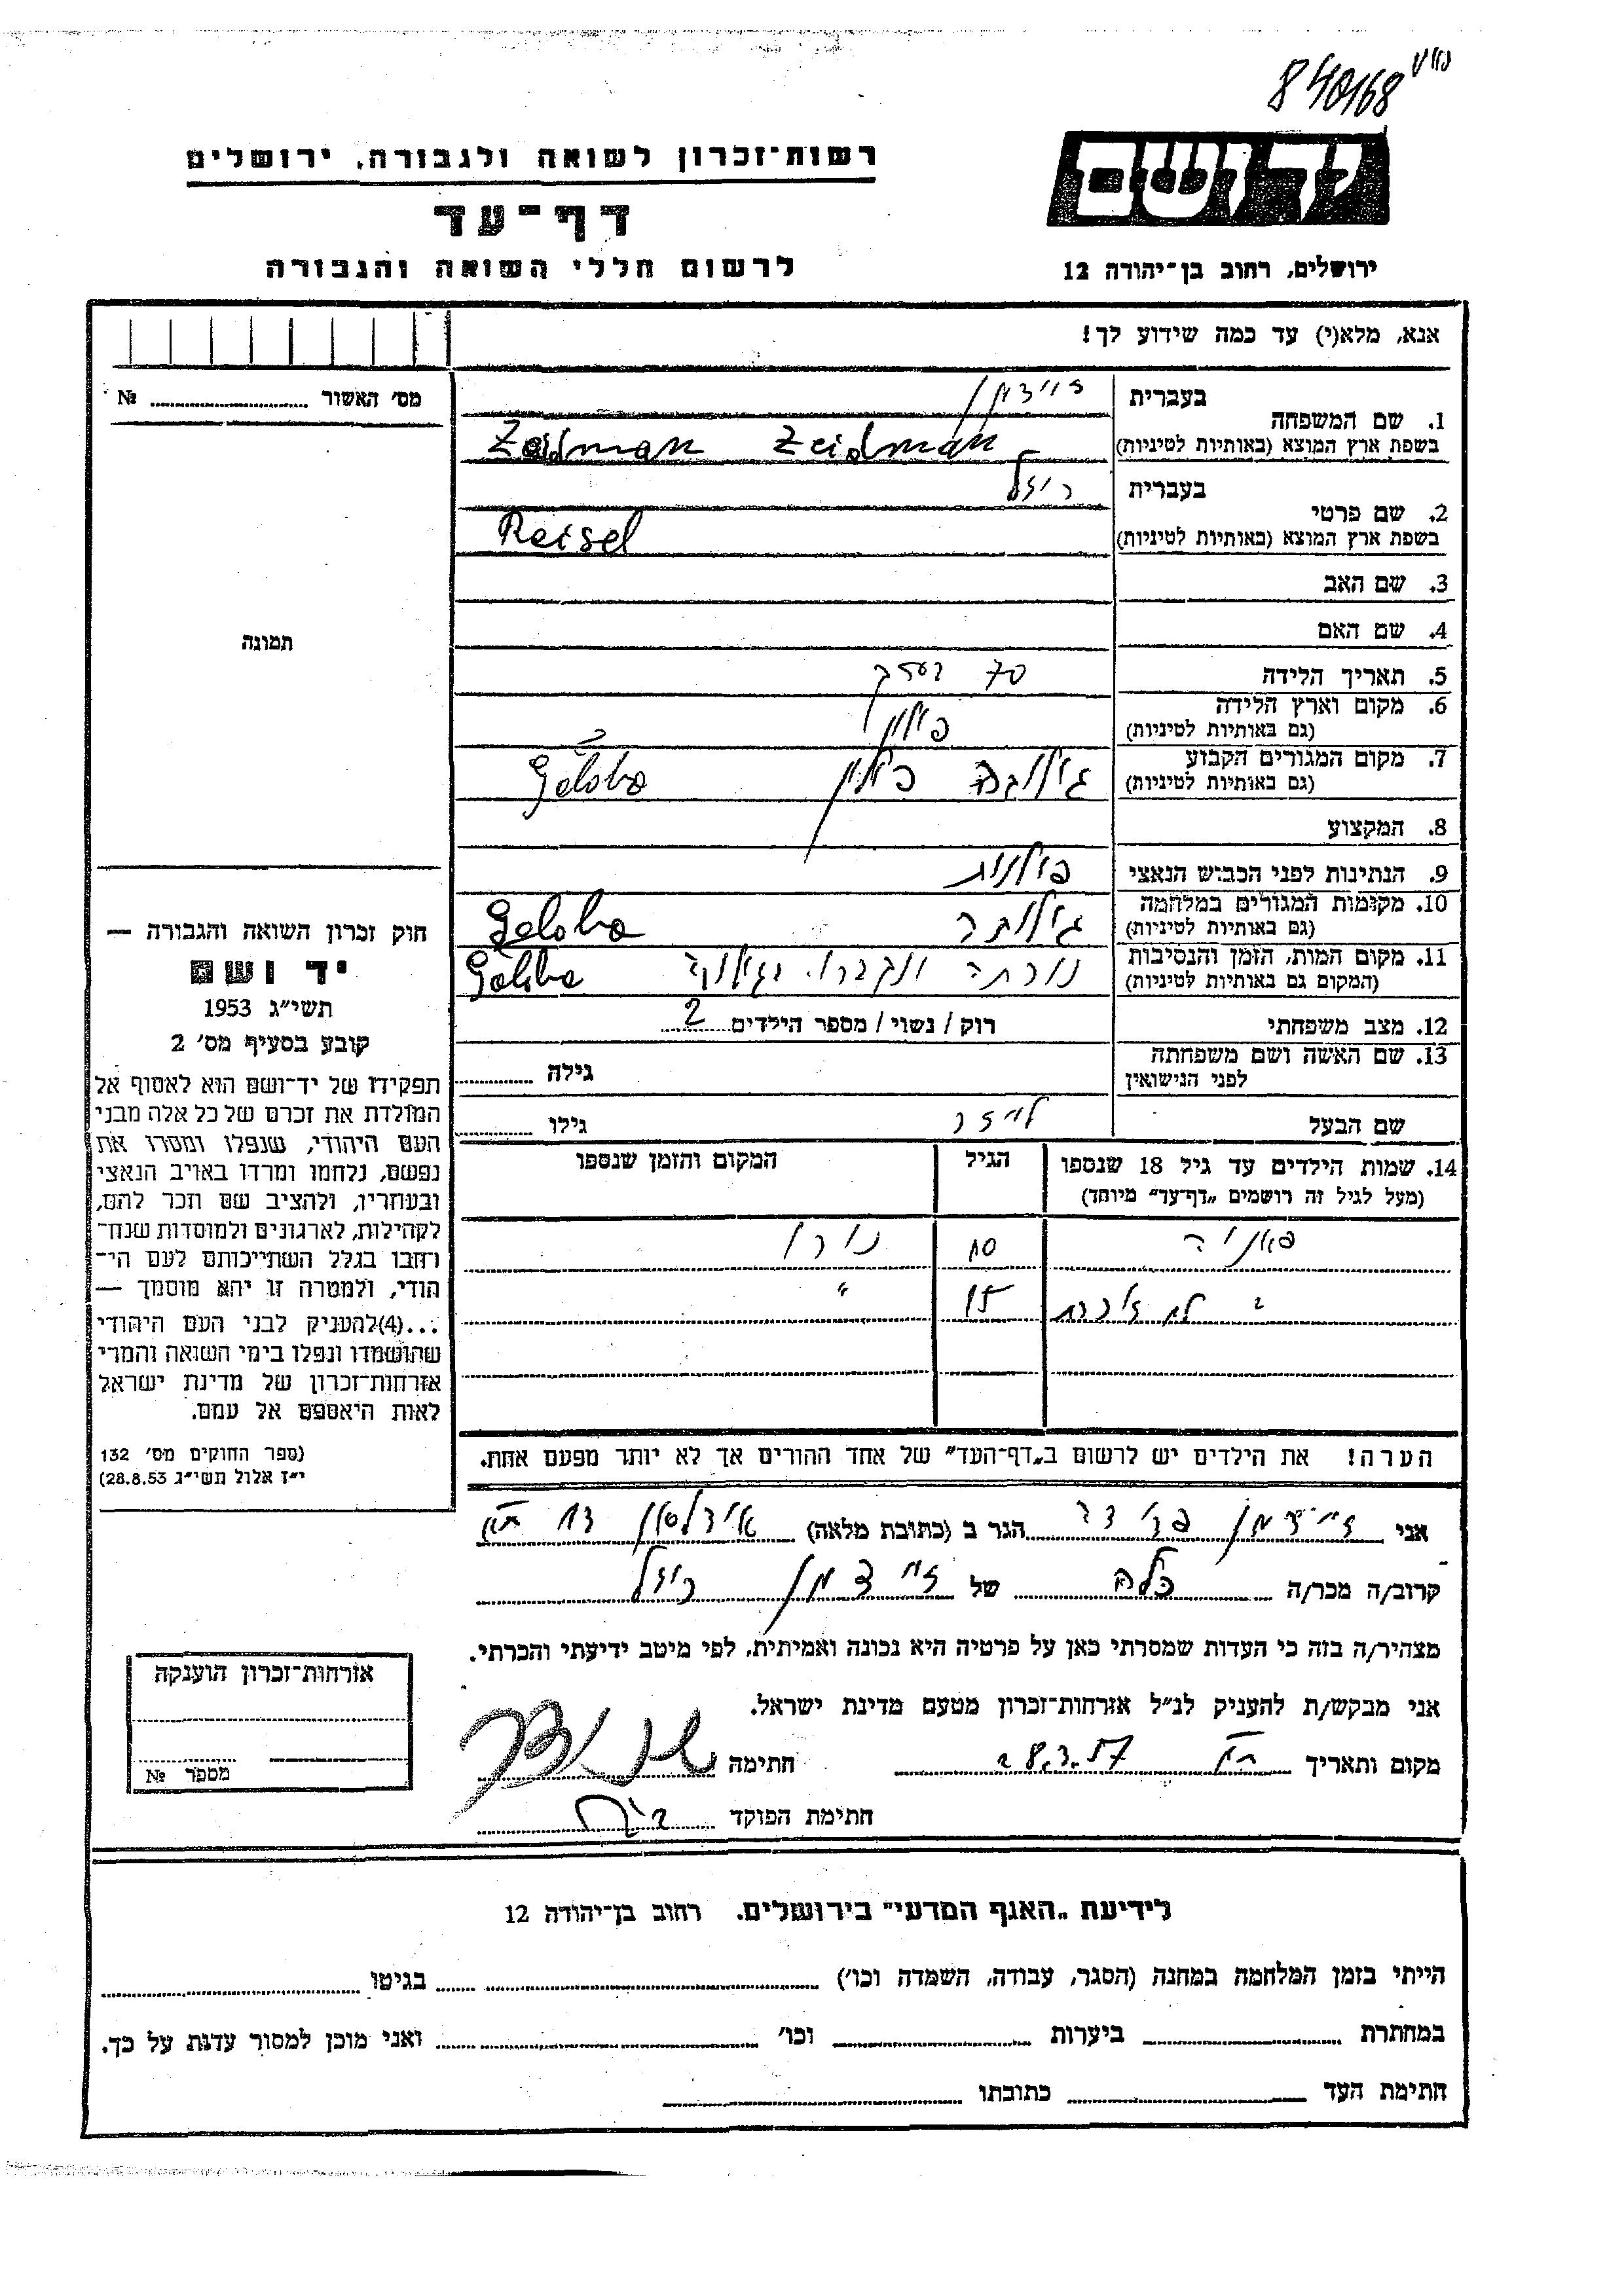 840168
רשות־זכרון לשואה ולגבורה, ירושלים
יד ושם
דף־עד
לרשום חללי השואה והגבורה
ירושלים, רחוב בן־יהודה 12
אנא, מלא(י) עד כמה שידוע לך!
מס׳ האשור № 
1. שם המשפחה
בעברית זיידמן
בשפת ארץ המוצא (באותיות לטיניות) Zeidman Zeidman
2. שם פרטי
בעברית ריזל
בשפת ארץ המוצא (באותיות לטיניות) Reisel
3. שם האב
4. שם האם
תמונה
5. תאריך הלידה 70
6. מקום וארץ הלידה פולין
(גם באותיות לטיניות)
7. מקום המגורים הקבוע פולין Geloba
(גם באותיות לטיניות)
8. המקצוע
9. הנתינות לפני הכבוש הנאצי פולנית
10. מקומות המגורים במלחמה Geloba
(גם באותיות לטיניות)
11. מקום המות, הזמן והנסיבות נורתה Geloba
(המקום גם באותיות לטיניות)
12. מצב משפחתי רוק / נשוי / מספר הילדים 2
13. שם האשה ושם משפחתה גילה
לפני הנישואין
שם הבעל לייזר גילו
14. שמות הילדים עד גיל 18 שנספו הגיל המקום והזמן שנספו
(מעל לגיל זה רושמים „דף־עד״ מיוחד)
פאניה 10 נורו
? לא זוכרת 15 ״
הערה! את הילדים יש לרשום ב„דף־העד״ של אחד ההורים אך לא יותר מפעם אחת.
חוק זכרון השואה והגבורה —
יד ושם
תשי״ג 1953
קובע בסעיף מס׳ 2
תפקידו של יד־ושם הוא לאסוף אל
המולדת את זכרם של כל אלה מבני
העם היהודי, שנפלו ומסרו את
נפשם, נלחמו ומרדו באויב הנאצי
ובעוזריו, ולהציב שם וזכר להם,
לקהילות, לארגונים ולמוסדות שנח־
רחבו בגלל השתייכותם לעם הי־
הודי, ולמטרה זו יהא מוסמך —
...(4)להעניק לבני העם היהודי
שהושמדו ונפלו בימי השואה והמרי
אזרחות־זכרון של מדינת ישראל
לאות היאספם אל עמם.
(ספר החוקים מס׳ 132
י״ז אלול תשי״ג 28.8.53)
אני זיידמן הגר ב (כתובת מלאה)
קרוב/ה מכר/ה כלה של זיידמן ריזל
מצהיר/ה בזה כי העדות שמסרתי כאן על פרטיה היא נכונה ואמיתית, לפי מיטב ידיעתי והכרתי.
אני מבקש/ת להעניק לנ״ל אזרחות־זכרון מטעם מדינת ישראל.
מקום ותאריך ת״א 28.3.57 חתימה
חתימת הפוקד
אזרחות־זכרון הוענקה
מספר №
לידיעת „האגף המדעי״ בירושלים, רחוב בן־יהודה 12
הייתי בזמן המלחמה במחנה (הסגר, עבודה, השמדה וכו׳) בגיטו
במחתרת ביערות וכו׳ ואני מוכן למסור עדות על כך.
חתימת העד כתובתו